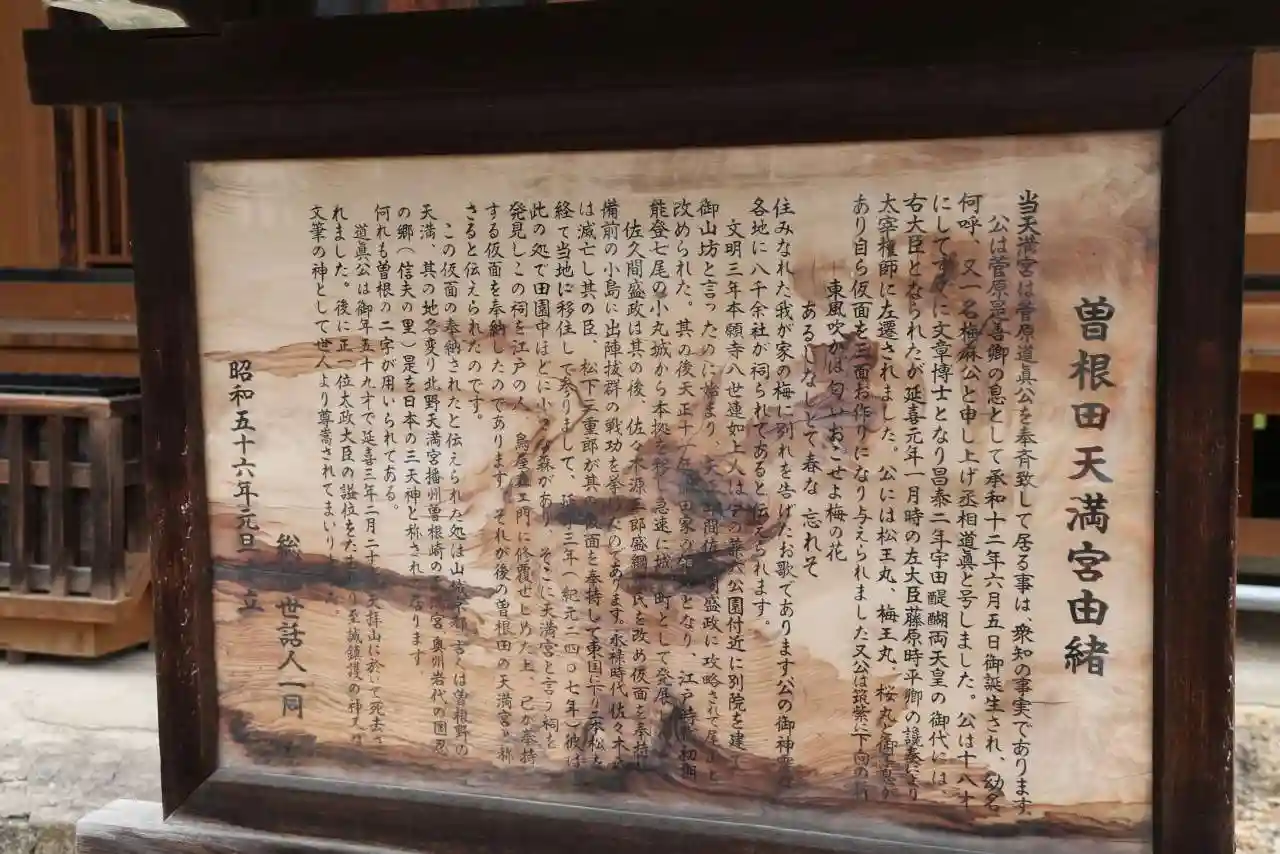 曽根田天満宮由緒
当天満宮は菅原道眞公を奉斉致して居る事は、衆知の事実であります
公は菅原是善卿の息として承和十二年六月五日御誕生され、幼名
何呼、又一名梅麻公と申し上げ丞相道眞と号しました。公は十八才
にしてすでに文章博士となり昌泰二年宇田醍醐両天皇の御代には、
右大臣となられたが延喜元年一月時の左大臣藤原時平卿の讒奏により
太宰権師に左遷されました。公には松王丸、梅王丸、桜丸と御子息が
あり自ら仮面を三面お作りになり与えられました又公は筑紫に下向の折
東風吹かば匂いおこせよ梅の花
あるじなしとて春な忘れそ
住みなれた我が家の梅に別れを告げたお歌であります公の御神霊は
各地に八千余社が祀られてあると伝えられます。
文明三年本願寺八世蓮如上人は今の兼六公園付近に別院を建て
御山坊と言ったのに始まり、天正 佐久間盛政に攻略されて尾山と
改められた。其の後天正十一年前田家の となり、江戸時代初期
能登七尾の小丸城から本拠を移し急速に城下町として発展
佐久間盛政は其の後、佐々木源三郎盛綱と氏を改め仮面を奉持し
備前の小島に出陣抜群の戦功を挙げたのであります。永禄時代佐々木家
は滅亡し其の臣、松下三重郎が其の仮面を奉持して東国に下り二本松を
経て当地に移住して参りまして、延 三年（紀元二四〇七年）彼は
此の処で田園中ほどに小 森があり、そこに天満宮と言う祠を
発見しこの祠を江戸の人 鳥屋 エ門に修覆せしめた上、己が奉持
する仮面を奉納したのであります。それが後の曽根田の天満宮と称
さると伝えられたのです。
この仮面の奉納されたと伝えられた処は山城京都 言くは曽根野の
天満、其の地名変り北野天満宮播州曽根崎の天満宮、奥州岩代の国忍
の郷（信夫の里）是を日本の三天神と称されて居ります
何れも曽根の二字が用いられてある。
道眞公は御年五十九才で延喜三年二月二十五 天拝山に於いて死去さ
れました。後に正一位太政大臣の謚位をたまわり至誠鎮護の神又は
文筆の神として世人より尊嵩されてまいりました。
昭和五十六年元旦 立
総 世話人一同